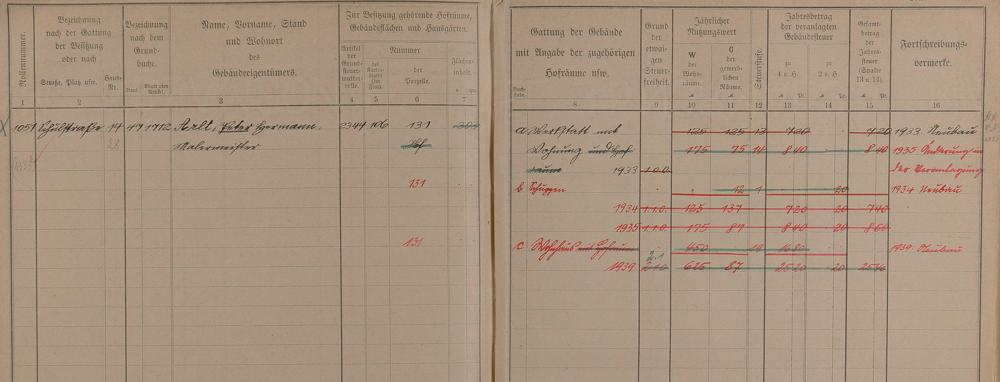 Rollennummer.
Bezeichnung
nach der Gattung
der Besitzung
oder nach
Straße, Platz usw.
Haus-
Nr.
Bezeichnung
nach dem
Grund-
buche.
Band
Blatt oder
Artikel.
Name, Vorname, Stand
und Wohnort
des
Gebäudeeigentümers.
Zur Besitzung gehörende Hofräume,
Gebäudeflächen und Hausgärten.
Artikel
der
Grund-
steuer-
mutter-
rolle.
Nummer
des
Karten-
blatts
der
Parzelle.
Flächen-
inhalt.
1 2 3 4 5 6 7
1051 Schulstraße 14 47 1712 Arlt, Peter Hermann, 2344 106 131
Malermeister Hof
131
131
Gattung der Gebäude
mit Angabe der zugehörigen
Hofräume usw.
Buch-
stabe.
Grund
der
etwai-
gen
Steuer-
freiheit.
Jährlicher
Nutzungswert
W
der
Wohn-
räume.
G
der
gewerb-
lichen
Räume.
Steuerstufe.
Jahresbetrag
der veranlagten
Gebäudesteuer
zu
4 v. H.
zu
2 v. H.
Gesamt-
betrag
der
Jahres-
steuer
(Spalte
13 u. 14).
Fortschreibungs-
vermerke.
8 9 10 11 12 13 14 15 16
a Werkstatt mit 125 125 13 720 720 1933 Neubau
Wohnung und Hof- 175 75 14 840 840 1935 Änderung in
raum 1933 1.1.0. der Veranlagung
b Schuppen 12 1 20 1934 Neubau
1934 1.1.0. 125 137 720 20 740
1935 1.1.0. 175 87 840 20 860
c Wohnhaus mit Hofraum 450 18 1680 1939 Neubau
1939 625 87 2520 20 2540